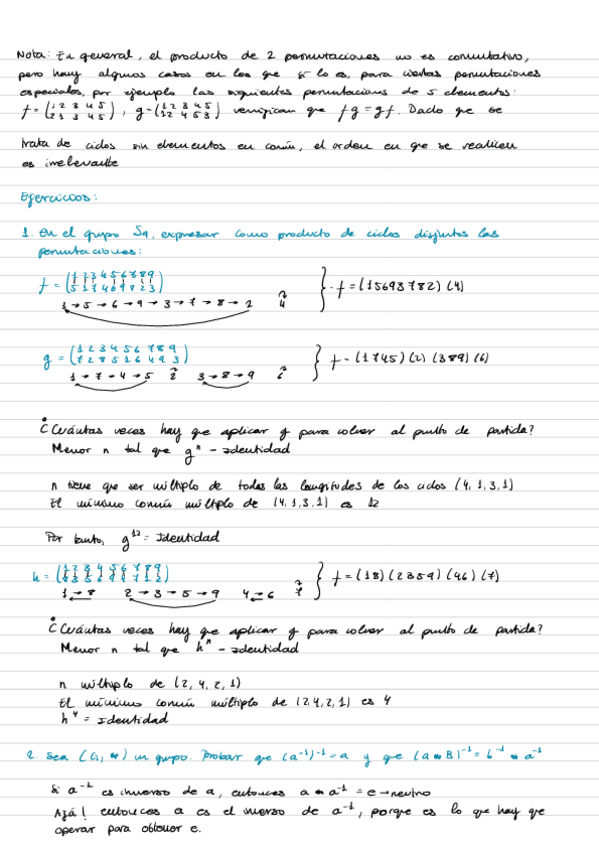 Nota: En general, el producto de 2 permutaciones no es conmutativo,
pero hay algunos casos en los que sí lo es, para ciertas permutaciones
especiales, por ejemplo las siguientes permutaciones de 5 elementos:
f = (1 2 3 4 5 / 2 1 3 4 5), g = (1 2 3 4 5 / 1 2 4 5 3) verifican que fg = gf. Dado que se
trata de ciclos sin elementos en común, el orden en que se realicen
es irrelevante
Ejercicios:
1. En el grupo S9, expresar como producto de ciclos disjuntos las
permutaciones:
f = (1 2 3 4 5 6 7 8 9 / 5 1 7 4 6 9 8 2 3) } f = (15693782)(4)
1→5→6→9→3→7→8→2 4
g = (1 2 3 4 5 6 7 8 9 / 7 2 8 5 1 6 4 9 3) } f = (1745)(2)(389)(6)
1→7→4→5 2 3→8→9 6
¿Cuántas veces hay que aplicar g para volver al punto de partida?
Menor n tal que gⁿ = Identidad
n tiene que ser múltiplo de todas las longitudes de los ciclos (4,1,3,1)
El mínimo común múltiplo de (4,1,3,1) es 12
Por tanto, g¹² = Identidad
h = } f = (18)(2359)(46)(7)
1→8 2→3→5→9 4→6 7
¿Cuántas veces hay que aplicar g para volver al punto de partida?
Menor n tal que hⁿ = Identidad
n múltiplo de (2,4,2,1)
El mínimo común múltiplo de (2,4,2,1) es 4
h⁴ = Identidad
2. Sea (G, *) un grupo. Probar que (a⁻¹)⁻¹ = a y que (a * B)⁻¹ = b⁻¹ * a⁻¹
Si a⁻¹ es inverso de a, entonces a * a⁻¹ = e → neutro
Ajá! entonces a es el inverso de a⁻¹, porque es lo que hay que
operar para obtener e.